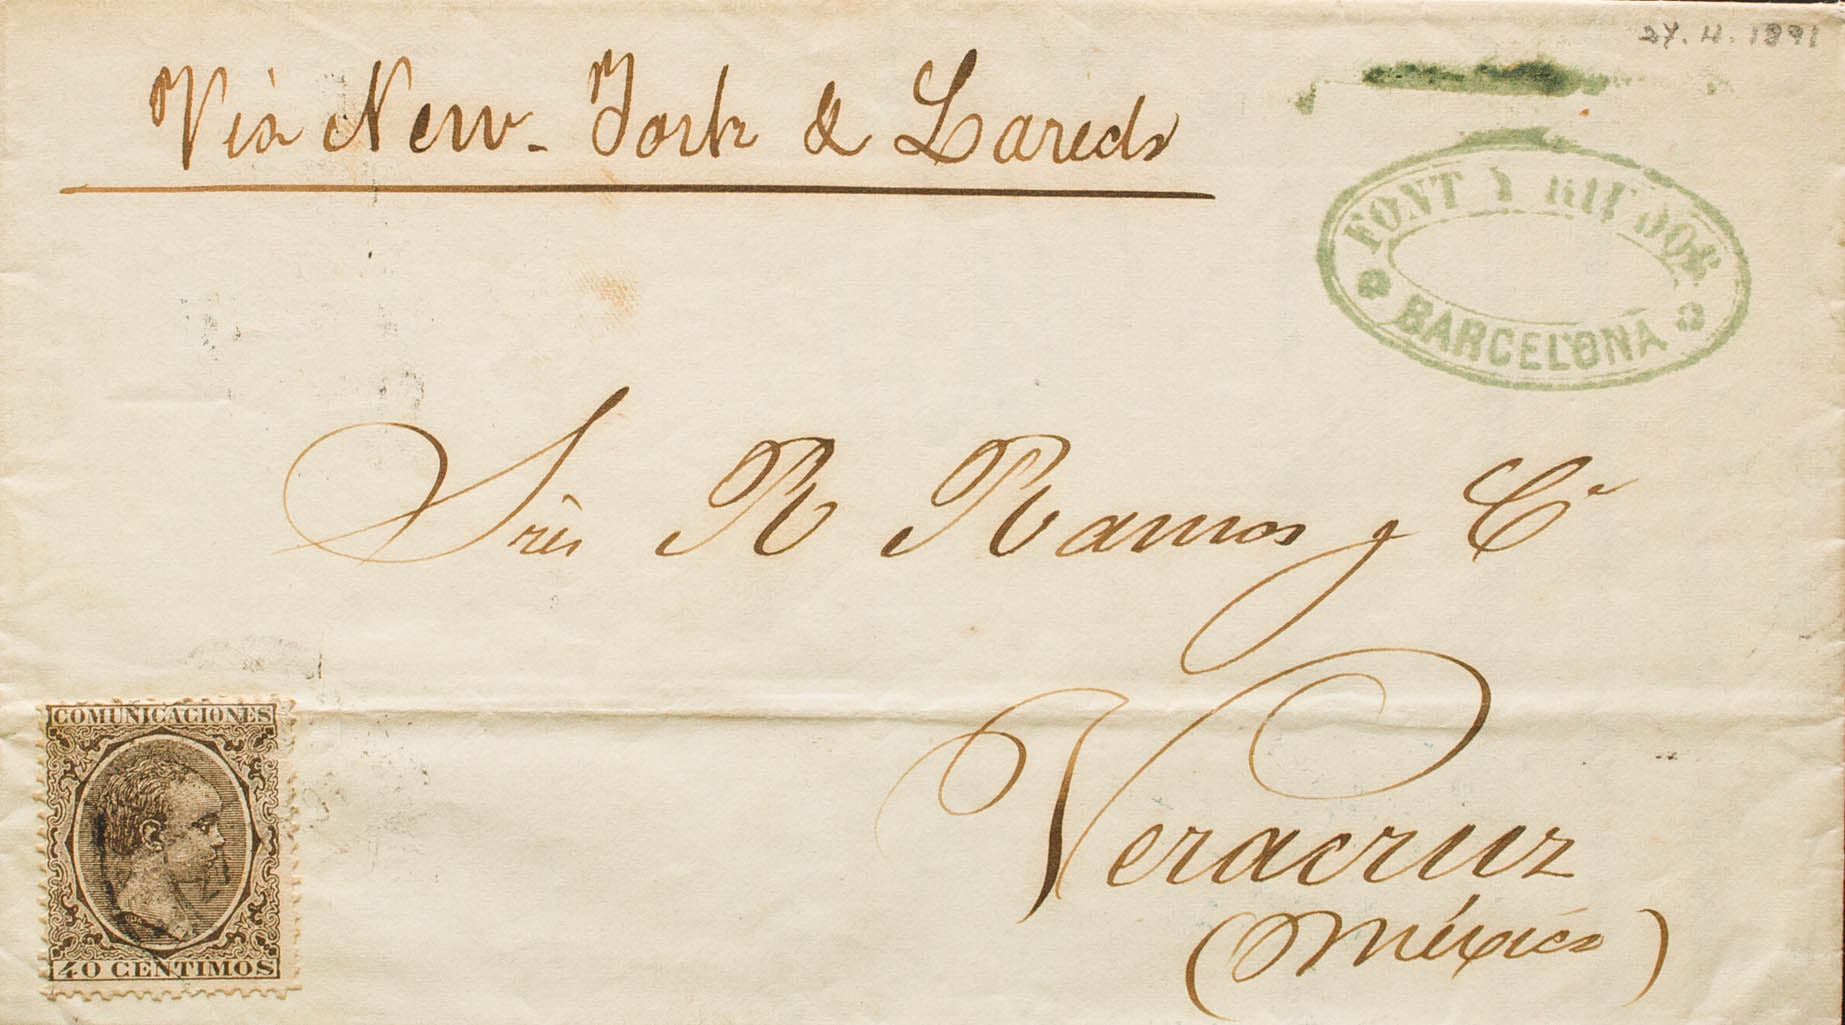 27. 4. 1891
Via New-York & Laredo
FONT Y RIUDOR
BARCELONA
Sres R Ramos y Cª
Veracruz
(México)
COMUNICACIONES
40 CENTIMOS